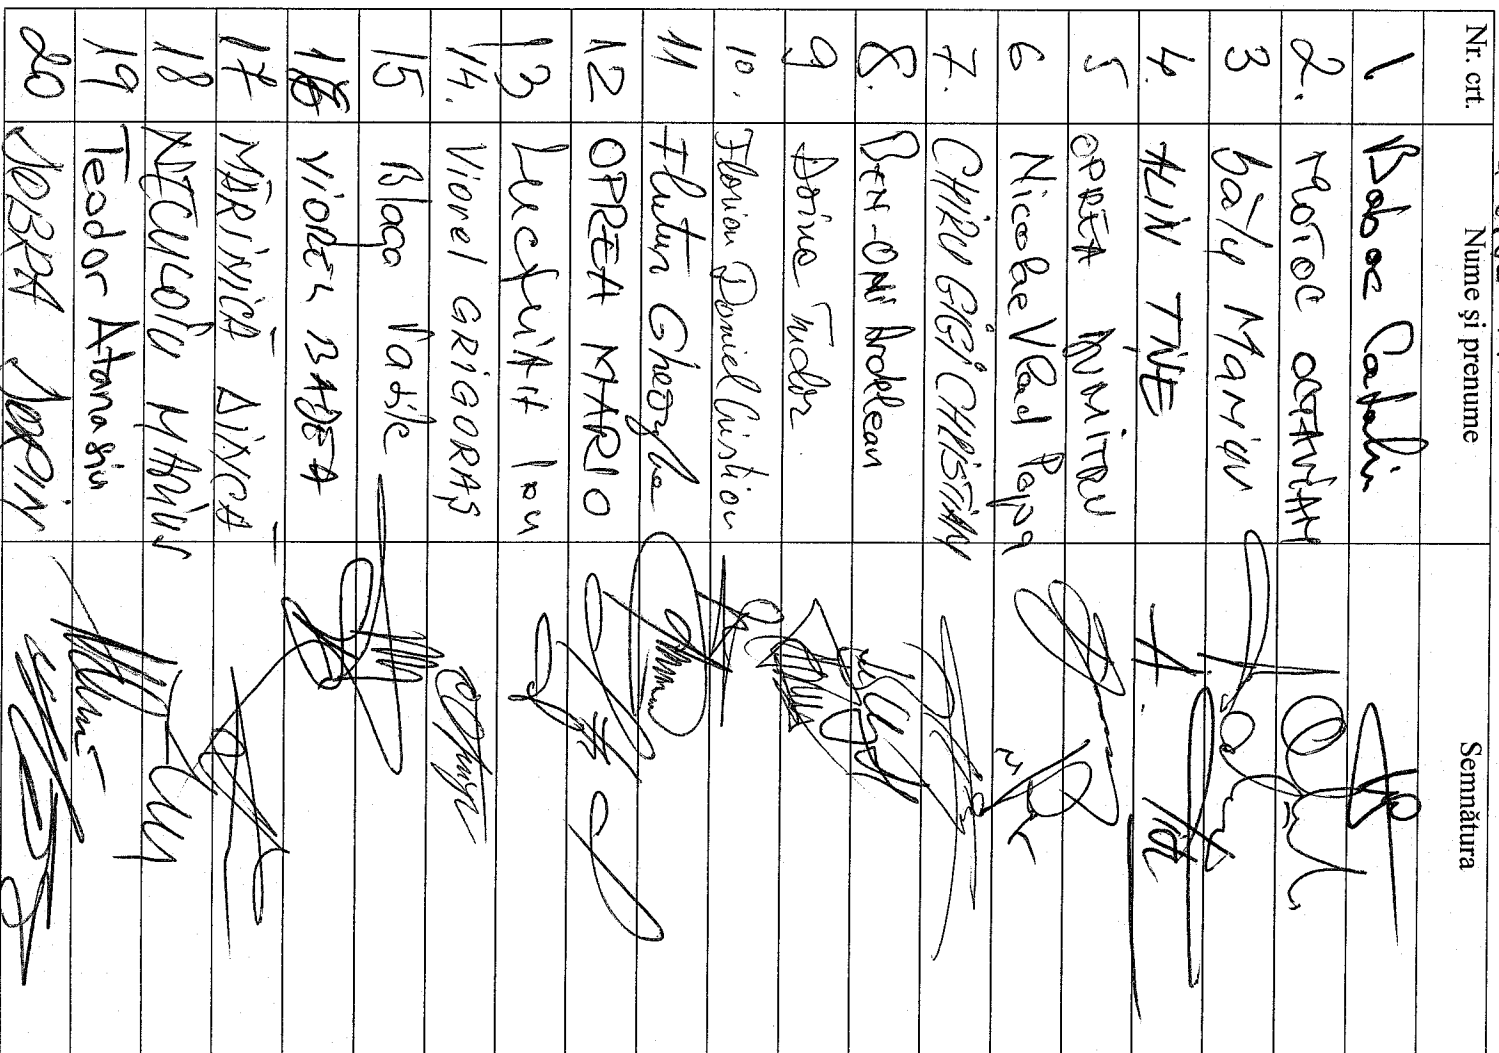 Nr. crt. Nume și prenume Semnătura
1. Boboc Catalin
2. MOTOC OCTAVIAN
3 Bály Marian
4. ALIN TIȘE
5 OPREA DUMITRU
6 Nicolae Vlad Popa
7. CHIRU GIGI CHRISTIAN
8. BEN-ONI Ardelean
9 Doina Tudor
10. Florian Daniel Cristian
11 Flutur Gheorghe
12 OPREA MARIO
13 Ion
14. Viorel GRIGORAȘ
15 Blaga Vasile
16 VIOREL BADEA
17 MĂRINICĂ DINCĂ
18 NECULOIU MARIUS
19 Teodor Atanasiu
20 DOBRA DORIN